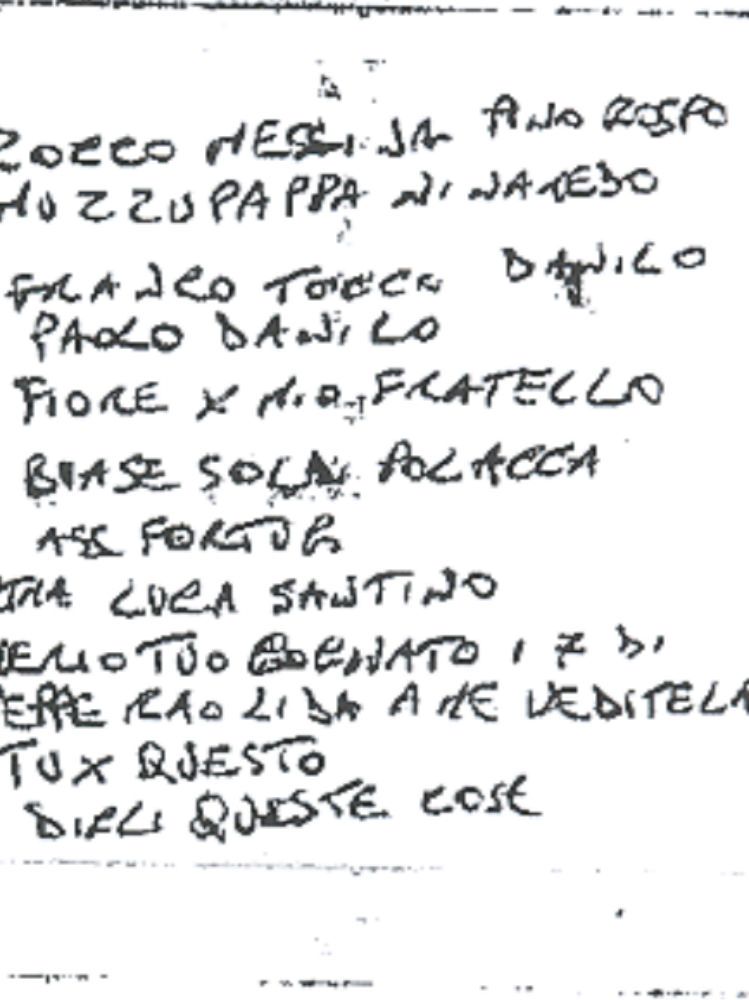 ROCCO MESSINA ANO ROSPO
MUZZUPAPPA NINAREDO
FRANCO DANILO
PAOLO DANILO
FIORE X MIO FRATELLO
BIASE SOLAI POLACCA
ASS FORTUG
LUCA SANTINO
TUO COGNATO I 7 DI
PEPPE RAO LIDA A ME VEDITELA
TU X QUESTO
DIRLI QUESTE COSE